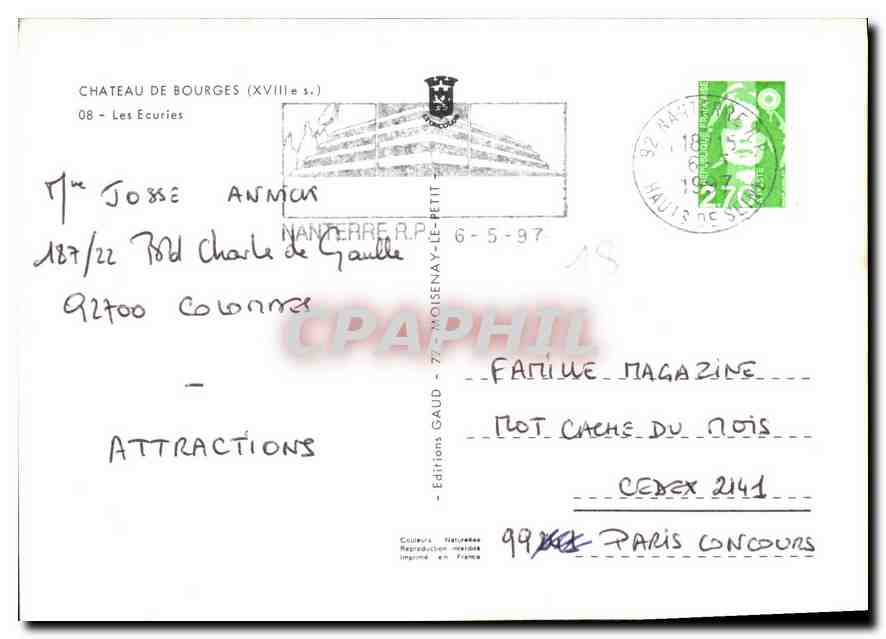 CHATEAU DE BOURGES (XVIIIe s.)
08 - Les Ecuries
NANTERRE R.P. 6-5-97
92 NANTERRE
18 -15
6 -
1997
HAUTS DE SEINE
REPUBLIQUE FRANÇAISE
2.70
LA POSTE
Mme JOSSE ANNICK
187/22 Bld Charle de Gaulle
92700 COLOMBES
-
ATTRACTIONS
18
CPAPHIL
- Editions GAUD - 77 - MOISENAY-LE-PETIT -
FAMILLE MAGAZINE
MOT CACHE DU MOIS
CEDEX 2141
99 PARIS CONCOURS
Couleurs Naturelles
Reproduction interdite
Imprimé en France